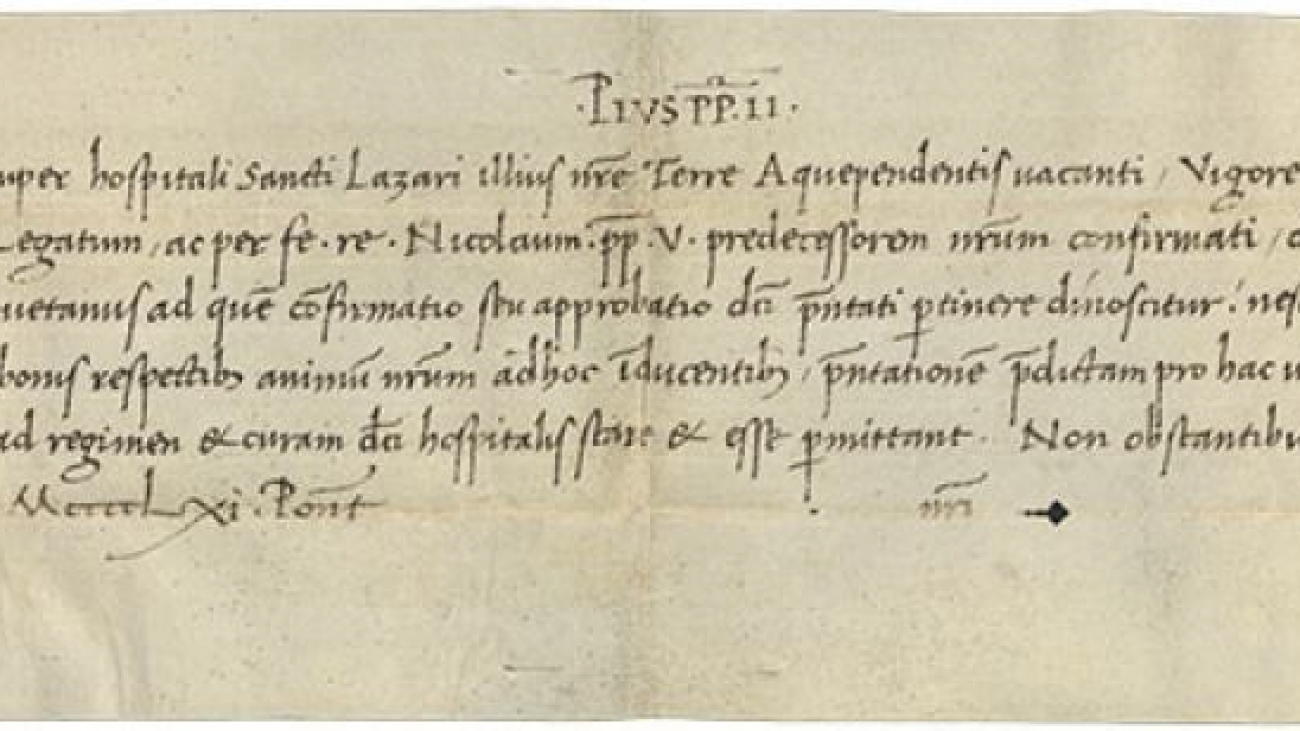 ·PIVS P̄P̄.II·
hospitali Sancti Lazari illius nr̄e Terre Aquependentis uacanti / Vigore
Legatum, ac per fe·re·Nicolaum·pp·V·predecessorem nr̄um confirmati /
ad quē cōfirmatio seu approbatio dc̄i p̄ntati ꝑtinere dinoscitur:
bonis respectibꝫ animū nr̄um ad hoc īducentibꝫ / p̄ntationē p̄dictam pro hac
ad regimen & curam dc̄i hospitalis stare & esse ꝑmittant. Non obstantibu
MccccLxi. Pont̄ nr̄i